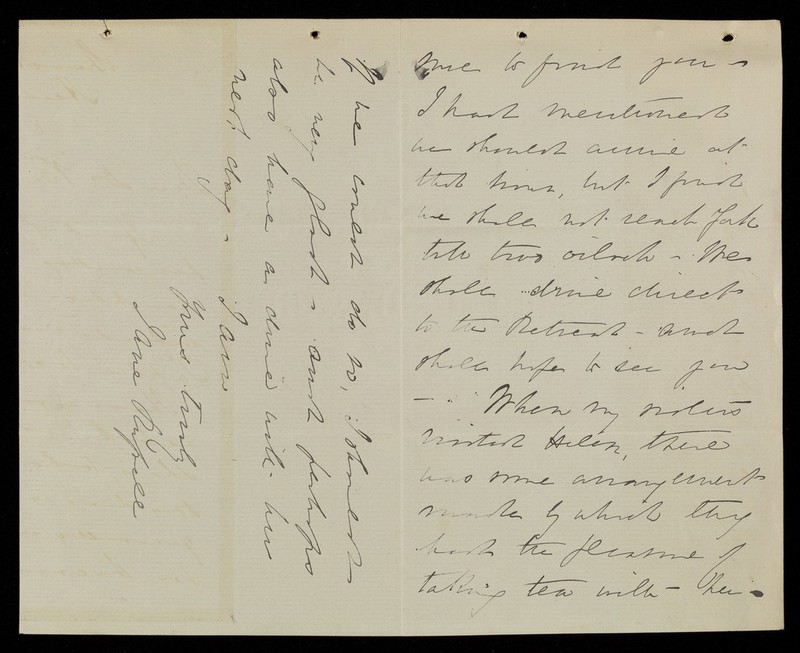 sure to find you -
I had mentioned
we should arrive at
that time, but I find
we shall not reach York
till two oclock - We
shall drive direct
to the Retreat - and
shall hope to see you
- When my sisters
visited Helen, there
was some arrangement
made by which they
had the pleasure of
taking tea with - her -
If we could do so, I should
be very glad - and perhaps
also have a drive with her
next day - I am
Yours truly
Jane